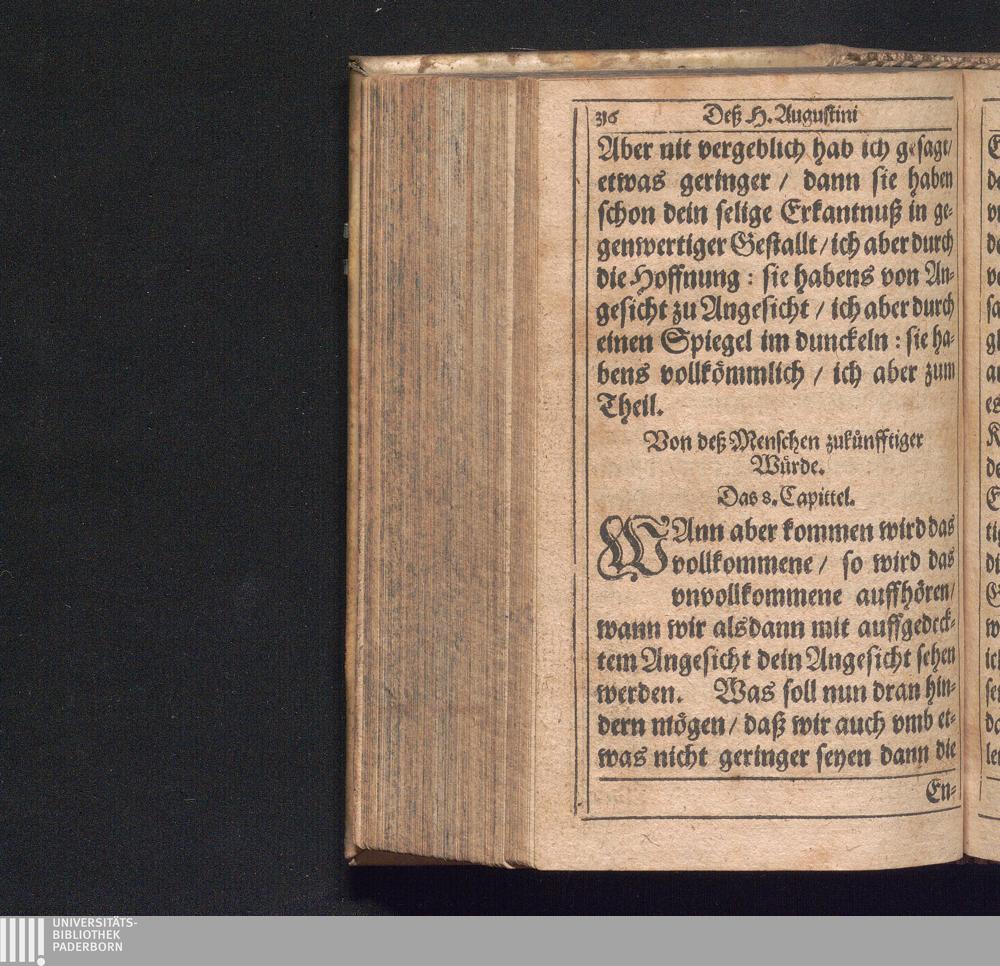 316 Deß H. Augustini
Aber nit vergeblich hab ich gesagt/
etwas geringer / dann sie haben
schon dein selige Erkantnuß in ge-
genwertiger Gestallt / ich aber durch
die Hoffnung : sie habens von An-
gesicht zu Angesicht / ich aber durch
einen Spiegel im dunckeln : sie ha-
bens vollkömmlich / ich aber zum
Theil.
Von deß Menschen zukünfftiger
Würde.
Das 8. Capittel.
WAnn aber kommen wird das
vollkommene / so wird das
vnvollkommene auffhören/
wann wir alsdann mit auffgedeck-
tem Angesicht dein Angesicht sehen
werden. Was soll nun dran hin-
dern mögen / daß wir auch vmb et-
was nicht geringer seyen dann die
En-
UNIVERSITÄTS-
BIBLIOTHEK
PADERBORN